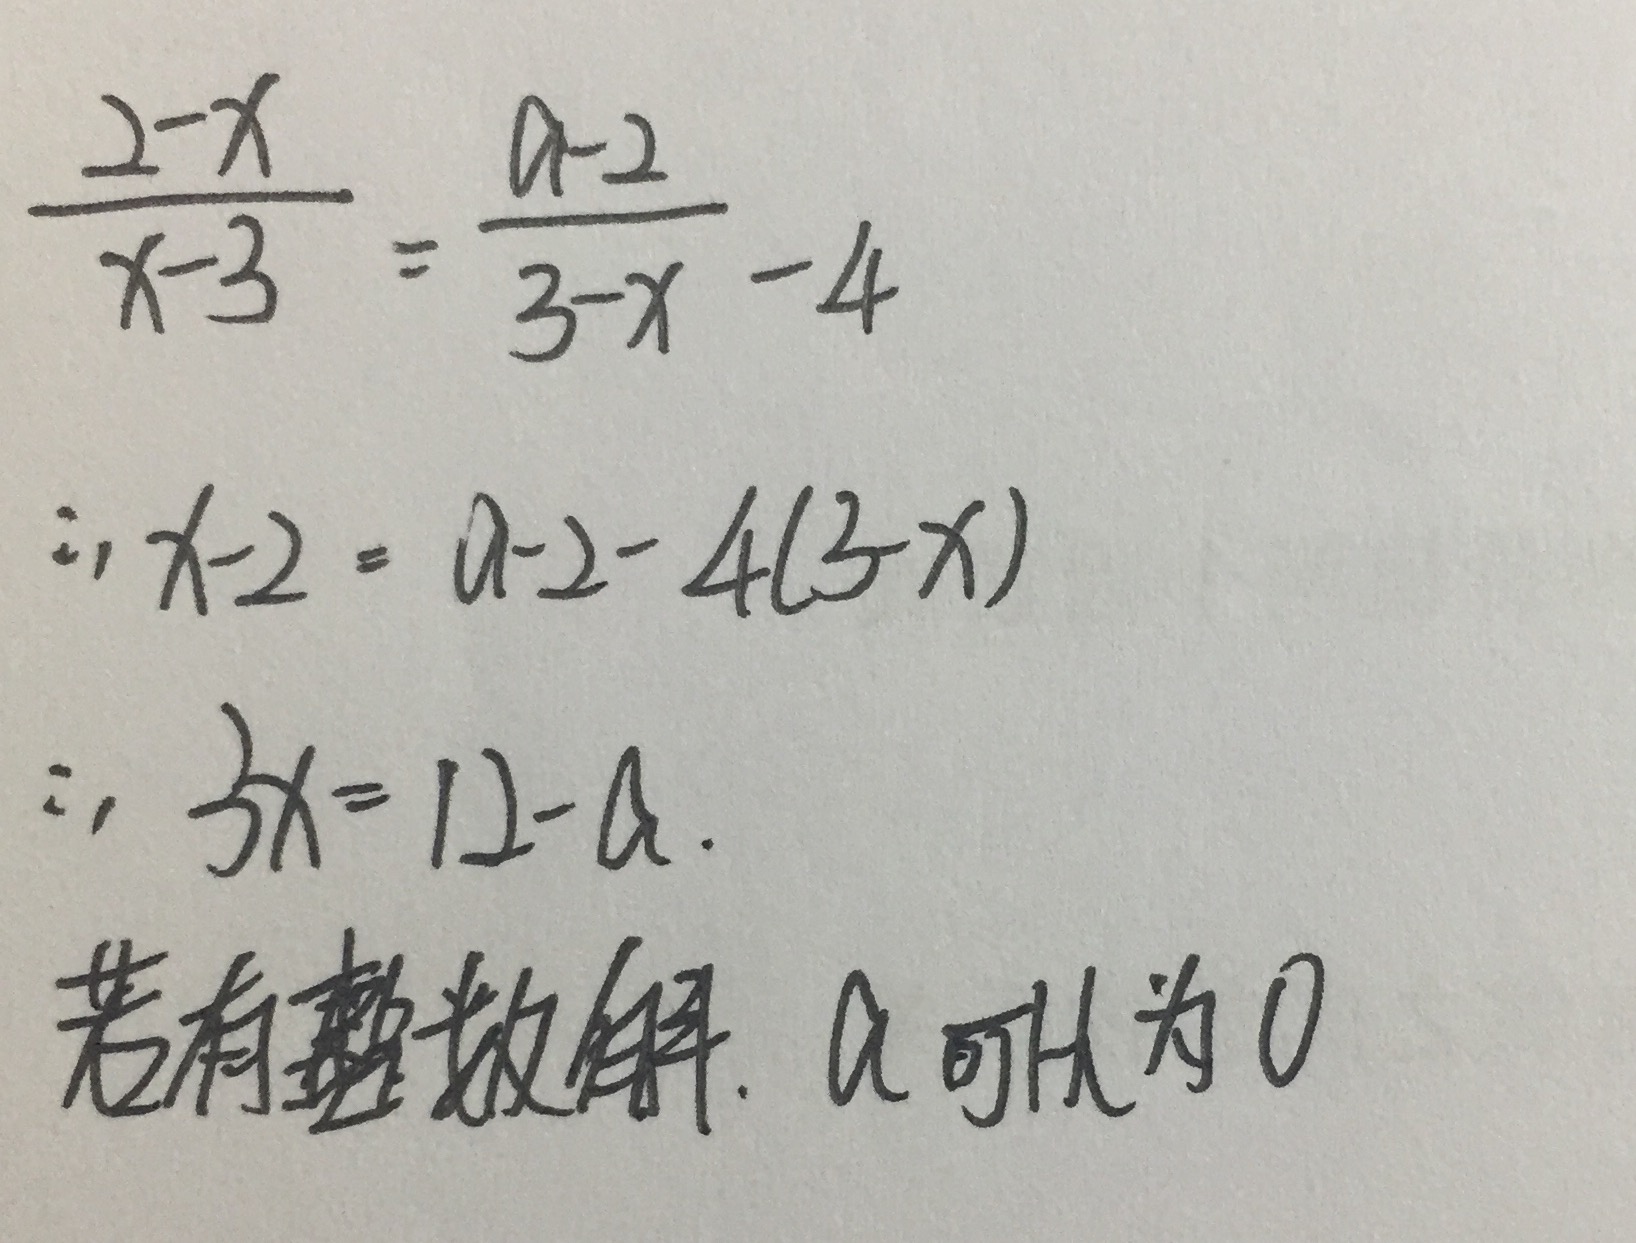 \frac{2-x}{x-3} = \frac{a-2}{3-x} - 4
∴ x-2 = a-2-4(3-x)
∴ 3x = 12-a.
若有整数解. a可以为0